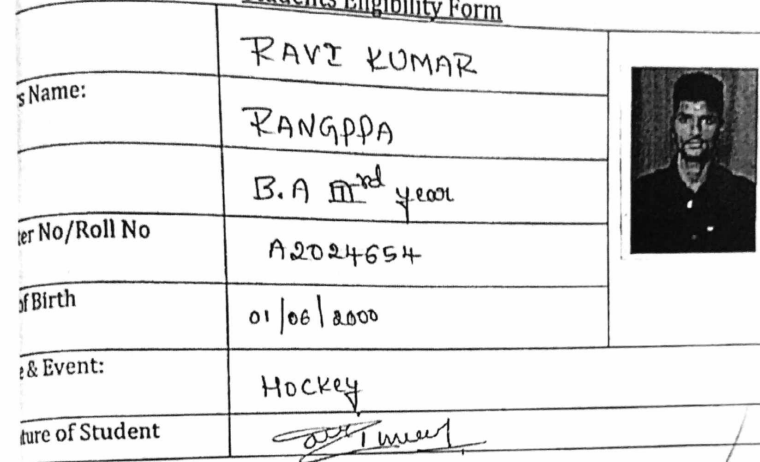 Students Eligibility Form
RAVI KUMAR
s Name:
RANGPPA
B.A IIIrd year
ter No/Roll No
A2024654
of Birth
01/06/2000
e & Event:
HOCKEY
ture of Student